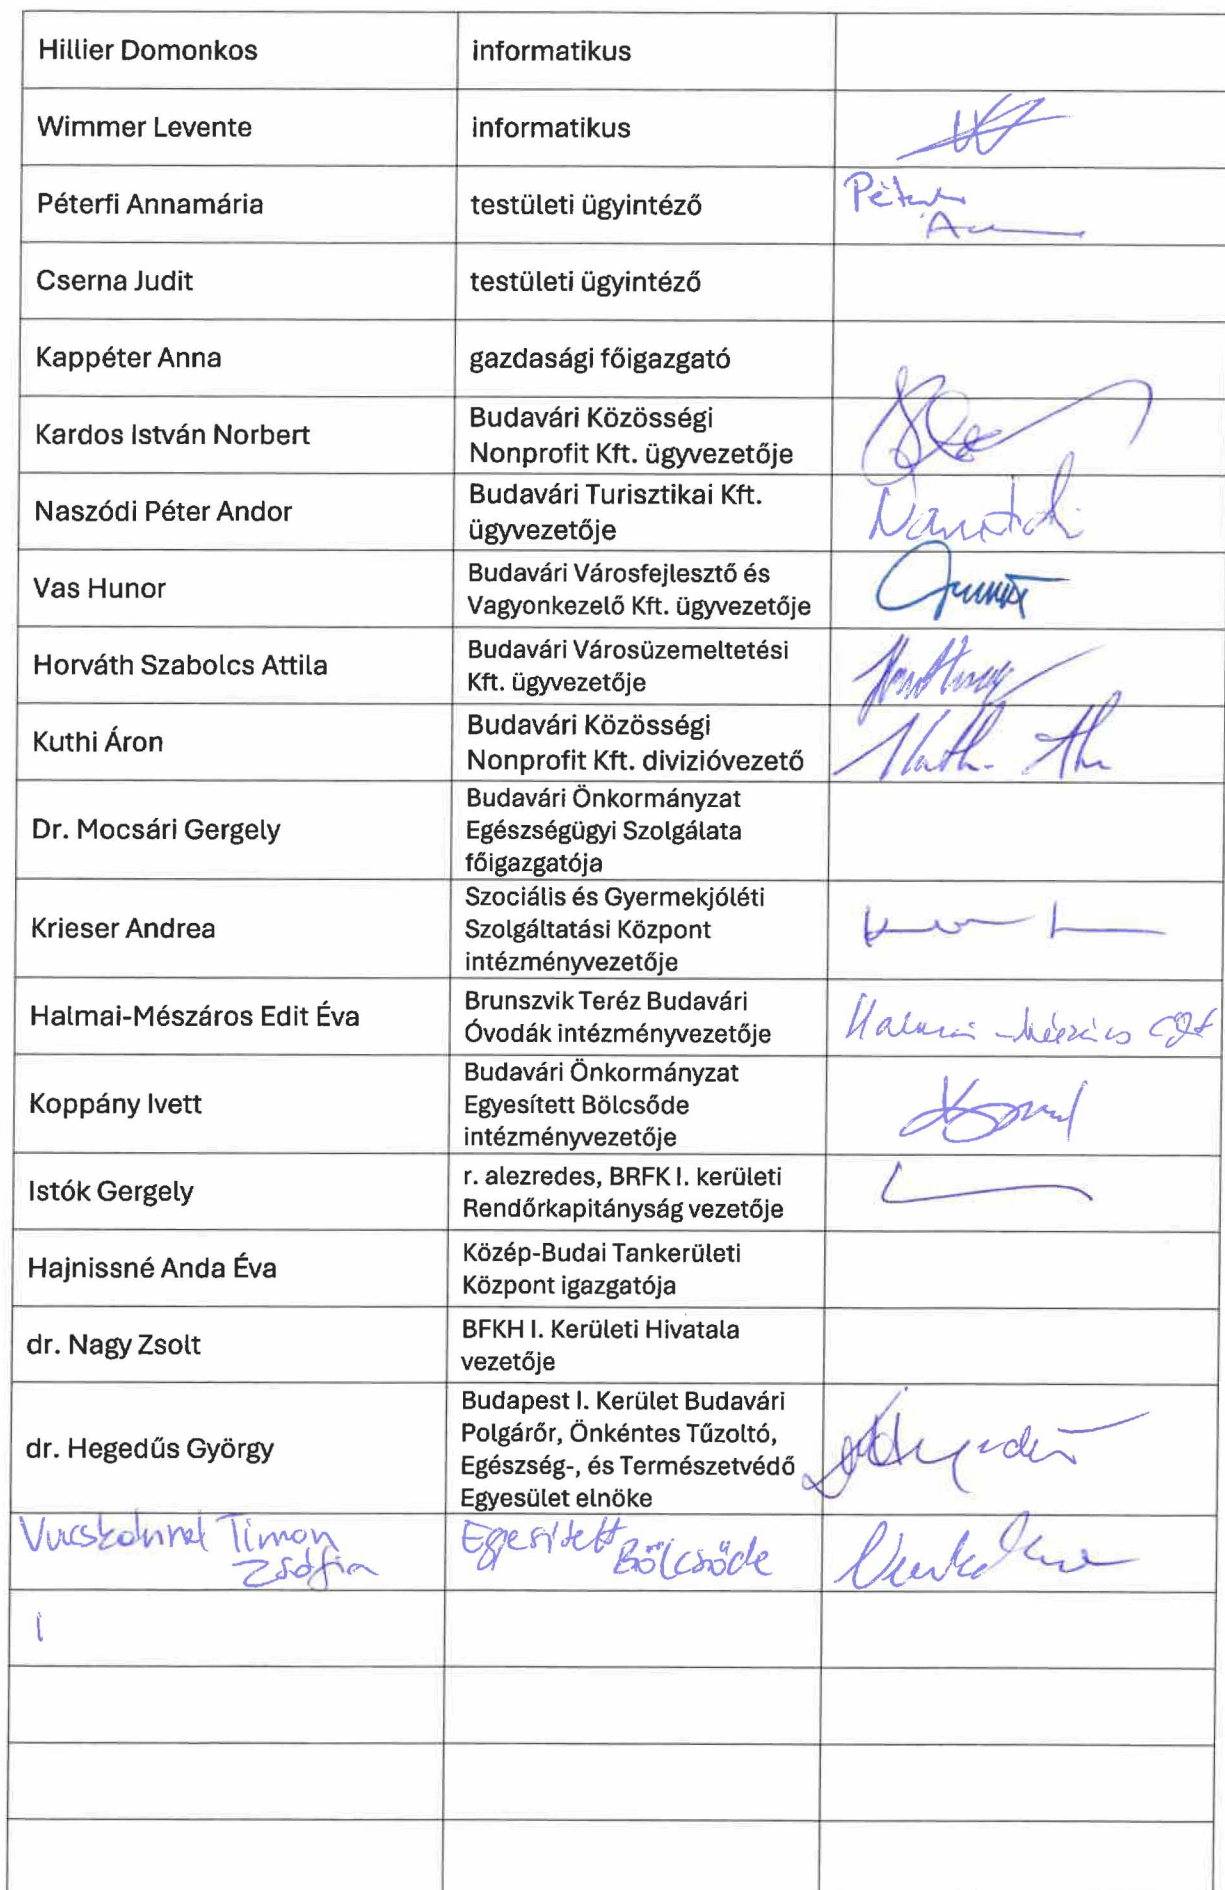 Hillier Domonkos
informatikus
Wimmer Levente
informatikus
Péterfi Annamária
testületi ügyintéző
Cserna Judit
testületi ügyintéző
Kappéter Anna
gazdasági főigazgató
Kardos István Norbert
Budavári Közösségi
Nonprofit Kft. ügyvezetője
Naszódi Péter Andor
Budavári Turisztikai Kft.
ügyvezetője
Vas Hunor
Budavári Városfejlesztő és
Vagyonkezelő Kft. ügyvezetője
Horváth Szabolcs Attila
Budavári Városüzemeltetési
Kft. ügyvezetője
Kuthi Áron
Budavári Közösségi
Nonprofit Kft. divizióvezető
Dr. Mocsári Gergely
Budavári Önkormányzat
Egészségügyi Szolgálata
főigazgatója
Krieser Andrea
Szociális és Gyermekjóléti
Szolgáltatási Központ
intézményvezetője
Halmai-Mészáros Edit Éva
Brunszvik Teréz Budavári
Óvodák intézményvezetője
Koppány Ivett
Budavári Önkormányzat
Egyesített Bölcsőde
intézményvezetője
Istók Gergely
r. alezredes, BRFK I. kerületi
Rendőrkapitányság vezetője
Hajnissné Anda Éva
Közép-Budai Tankerületi
Központ igazgatója
dr. Nagy Zsolt
BFKH I. Kerületi Hivatala
vezetője
dr. Hegedűs György
Budapest I. Kerület Budavári
Polgárőr, Önkéntes Tűzoltó,
Egészség-, és Természetvédő
Egyesület elnöke
Timon
Zsófia
Egyesített
Bölcsőde